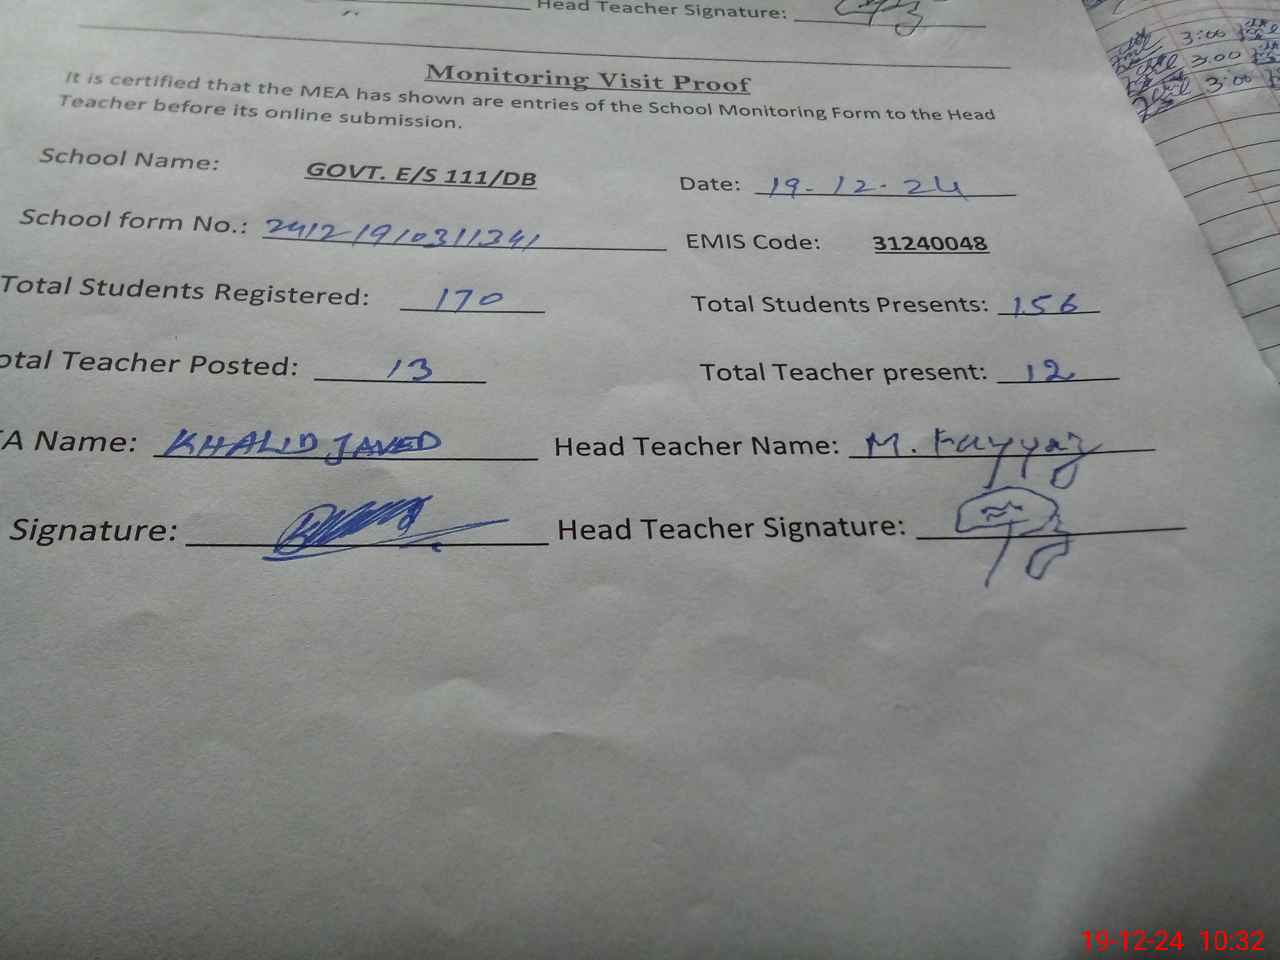 Head Teacher Signature:
Monitoring Visit Proof
It is certified that the MEA has shown are entries of the School Monitoring Form to the Head
Teacher before its online submission.
School Name: GOVT. E/S 111/DB Date: 19-12-24
School form No.: 24121910311341 EMIS Code: 31240048
Total Students Registered: 170 Total Students Presents: 156
otal Teacher Posted: 13 Total Teacher present: 12
A Name: KHALID JAVED Head Teacher Name: M. Fayyaz
Signature: Head Teacher Signature:
3:00
3.00
3:00
19-12-24 10:32